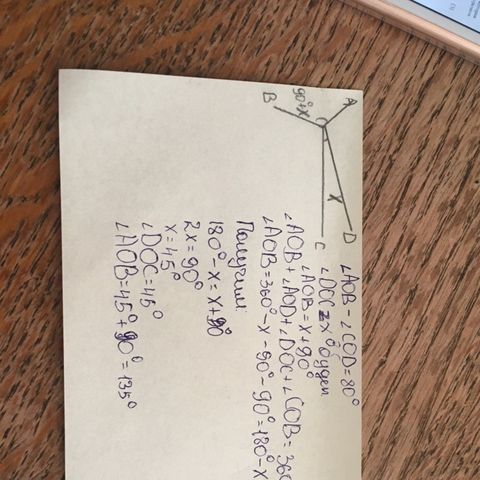 A
B
90°+x
x
D
C
∠AOB - ∠COD = 80°
∠DOC = x° будет
∠AOB = x + 90°
∠AOB + ∠AOD + ∠DOC + ∠COB = 360
∠AOB = 360° - x - 90° - 90° = 180° - x
Получим:
180° - x = x + 90°
2x = 90°
x = 45°
∠DOC = 45°
∠AOB = 45° + 90° = 135°